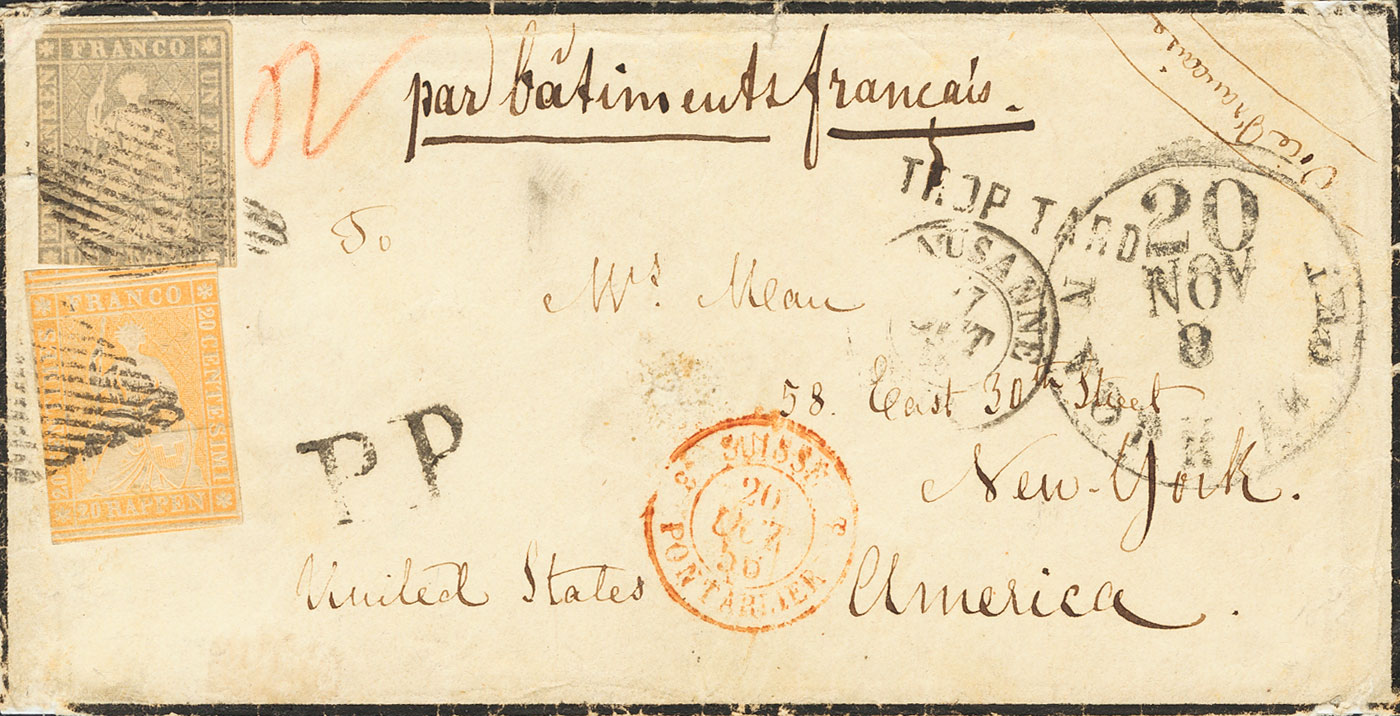 FRANCO
par bâtiments français.
Voie Française
TROP TARD
20
NOV
8
To
Mrs. Mean
58. East 30th Street
New-York.
United States America.
FRANCO
20 CENTESIMI
20 RAPPEN
PP
SUISSE
20
OCT
56
PONTARLIER